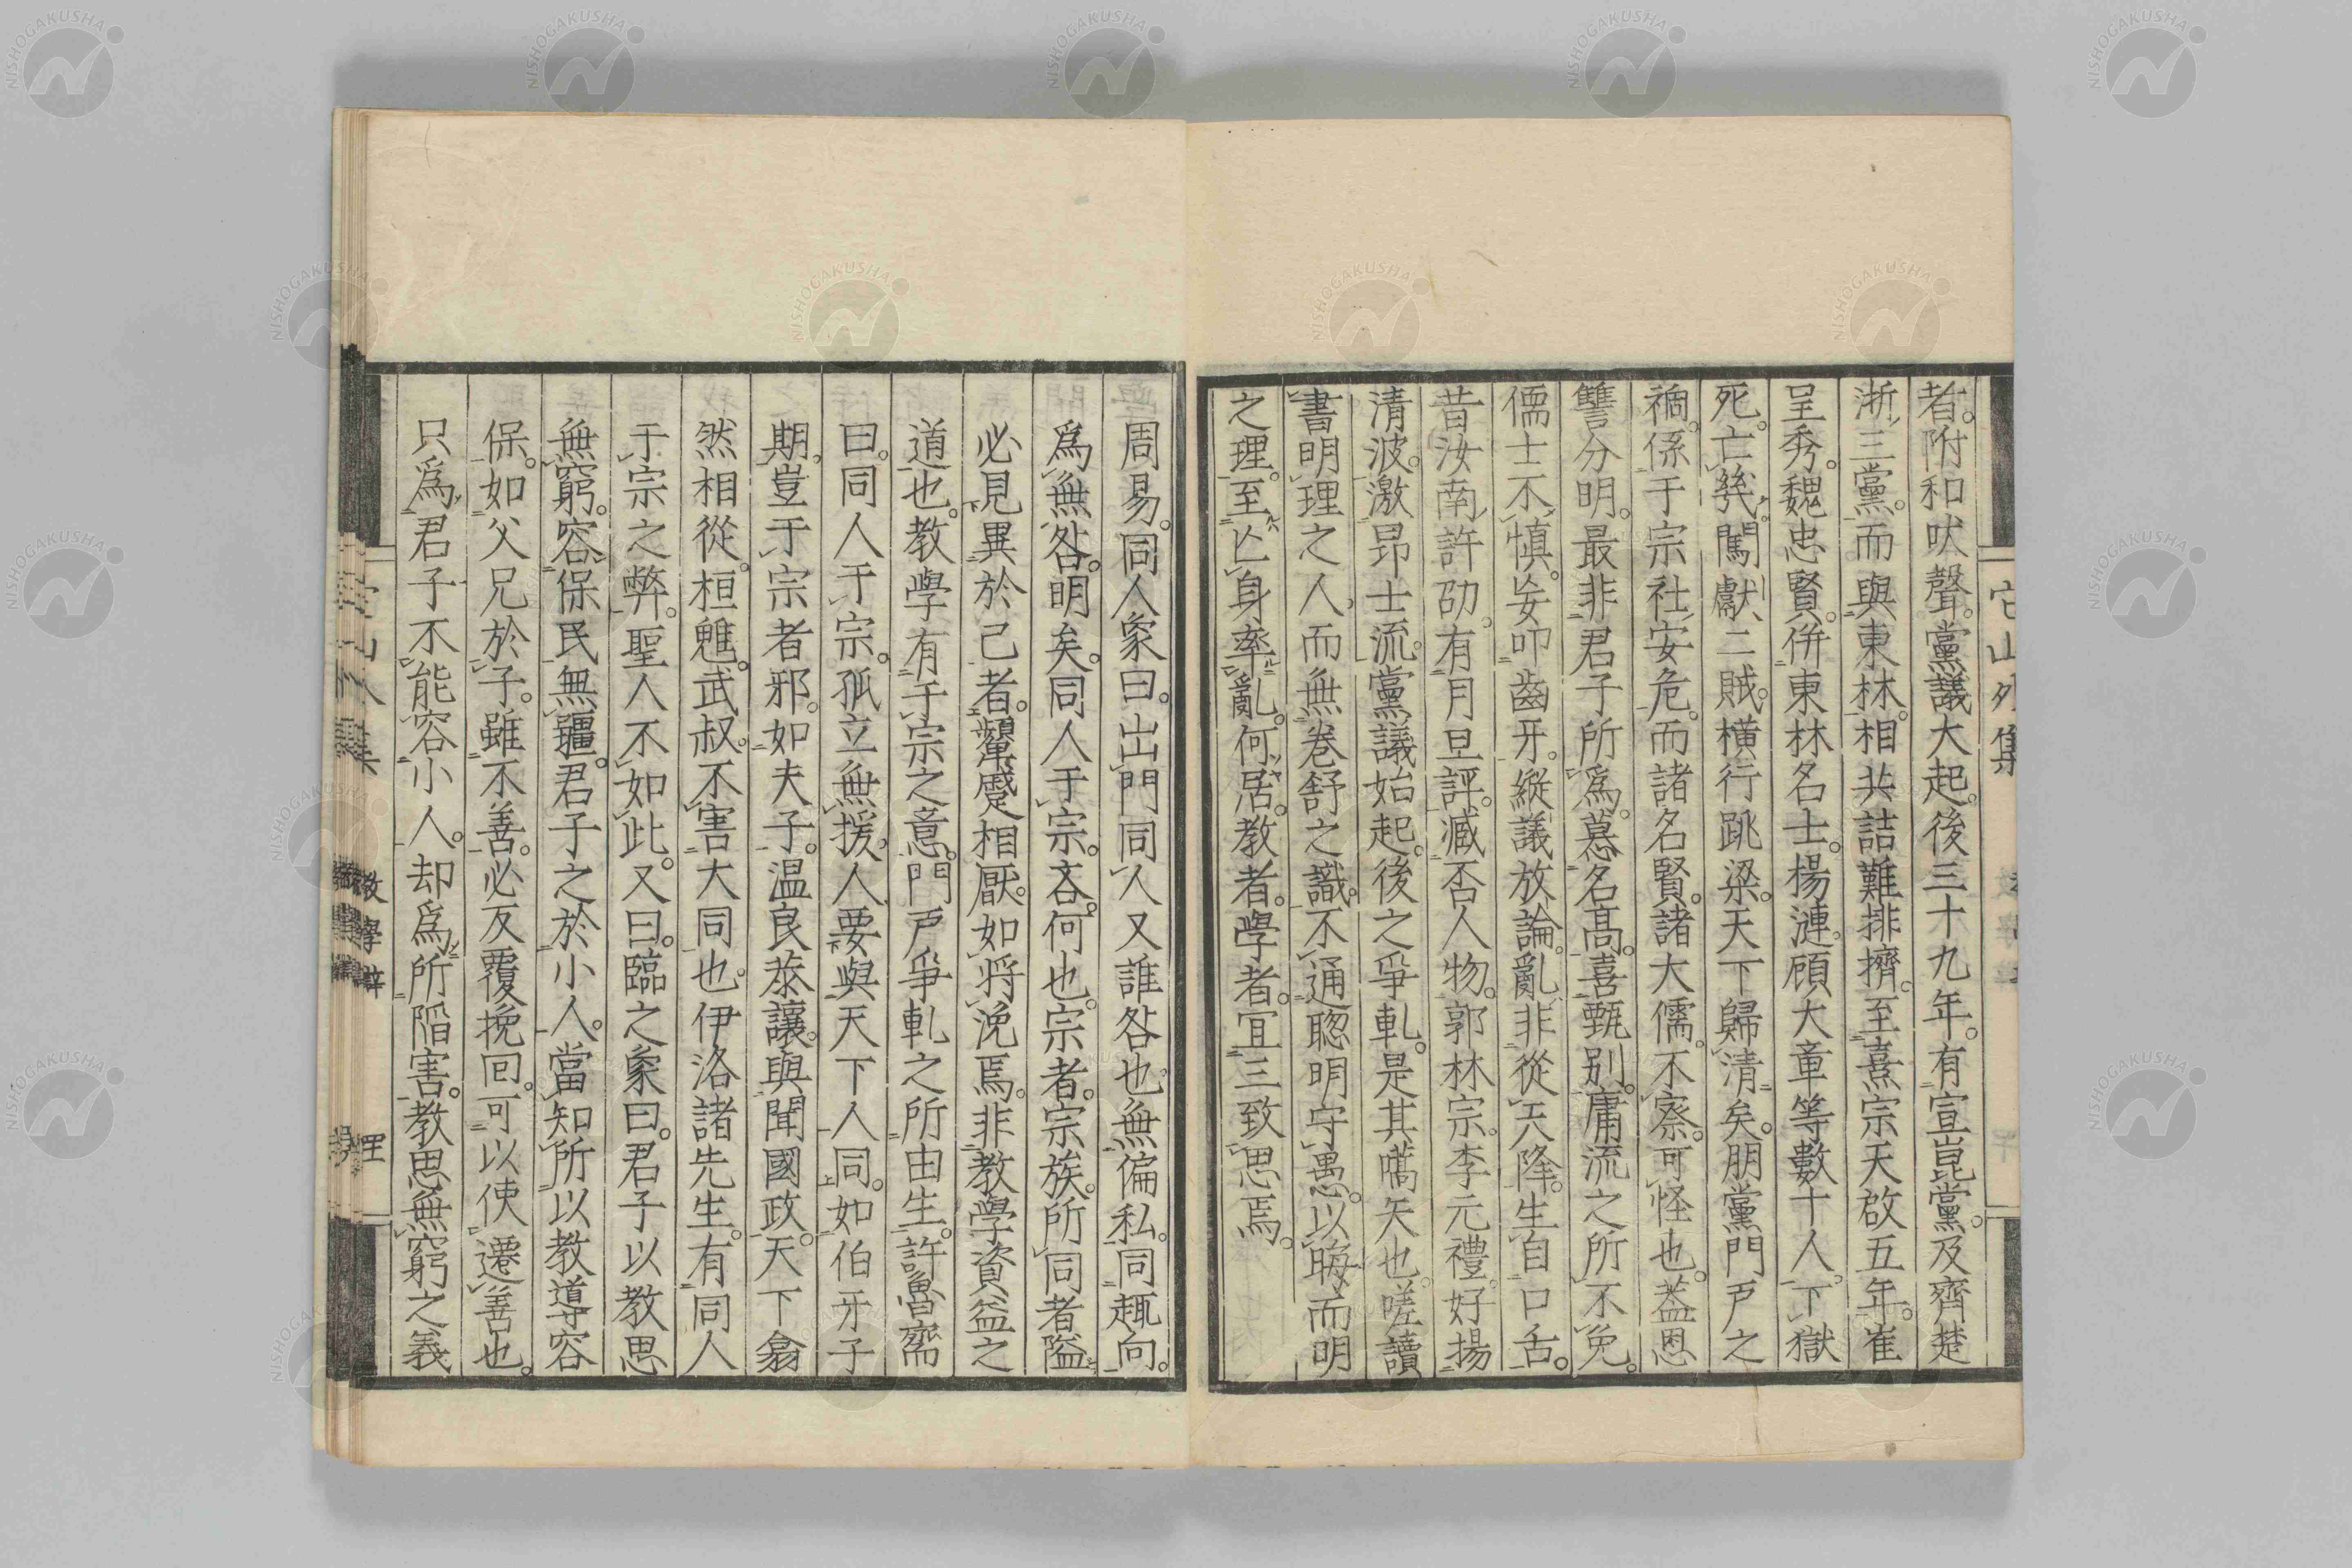 者。附和吠聲。黨議大起。後三十九年。有宣崑黨。及齊楚
浙三黨。而與東林。相共詰難排擠。至熹宗天啟五年。崔
呈秀。魏忠賢。併東林名士。楊漣。顧大章等數十人。下獄
死。亡幾。闖獻二賊。橫行跳梁。天下歸清矣。朋黨門戶之
禍。係于宗社安危。而諸名賢。諸大儒。不察。可怪也。蓋恩
讐分明。最非君子所為。慕名高。喜甄別。庸流之所不免。
儒士不慎。妄叩齒牙。縱議放論。亂非從天降。生自口舌。
昔汝南許劭。有月旦評。臧否人物。郭林宗。李元禮。好揚
清波。激昂士流。黨議始起。後之爭軋。是其嚆矢也。嗟讀
書明理之人。而無卷舒之識。不通聰明守愚。以晦而明
之理。至亡身率亂。何居。教者。學者。宜三致思焉。
周易。同人象曰。出門同人又誰咎也。無偏私。同趣向。
爲無咎。明矣。同人于宗。吝。何也。宗者。宗族。所同者隘
必見異於己者。顰蹙相厭。如將浼焉。非教學資益之
道也。教學有于宗之意。門戶爭軋之所由生。許魯齋
曰。同人于宗。孤立無援。人要與天下人同。如伯牙子
期。豈于宗者邪。如夫子。温良恭讓。與聞國政。天下翕
然相從。桓魋。武叔。不害大同也。伊洛諸先生。有同人
于宗之弊。聖人不如此。又曰。臨之象曰。君子以教思
無窮。容保民無疆。君子之於小人。當知所以教導容
保。如父兄於子。雖不善。必反覆挽回。可以使遷善也。
只爲君子不能容小人。却爲所陷害。教思無窮之義